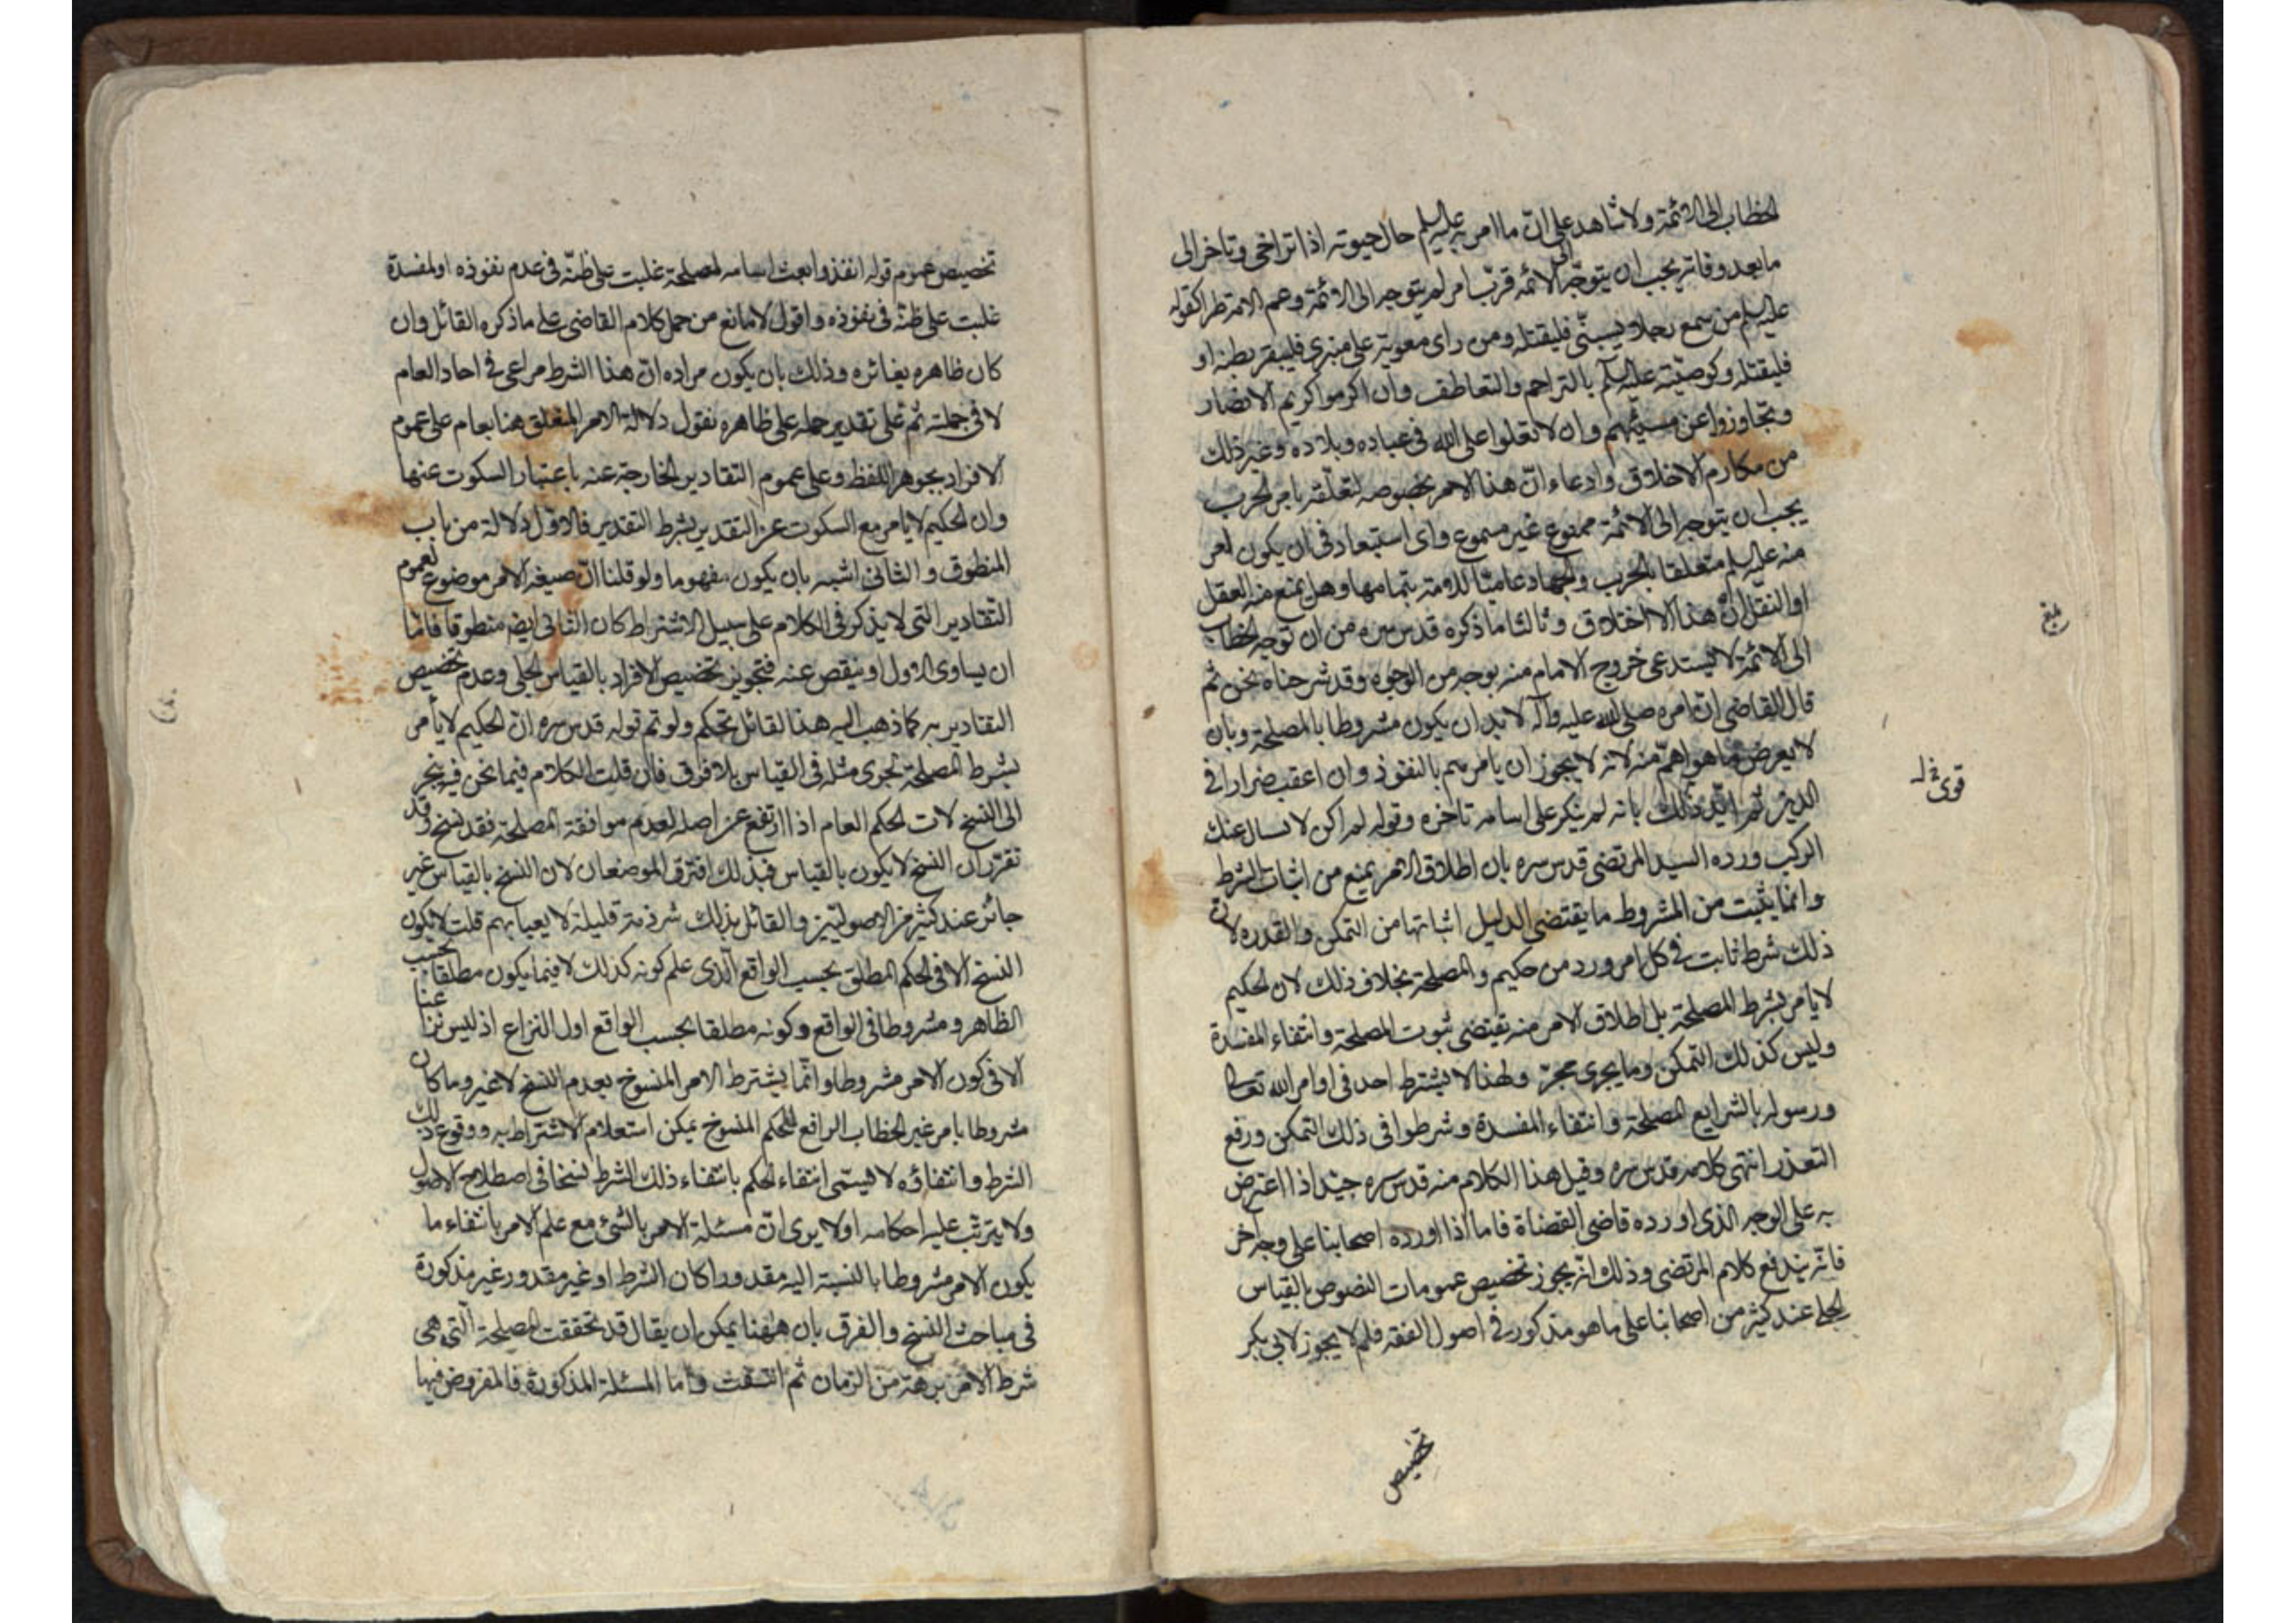 الخطاب الى الائمة ولا شاهد على ان ما امر به عليه السلم حال حيوته اذا تراخى وتاخر الى
ما بعد وفاته يجب ان يتوجه الى الائمه فرب امر لم يتوجه الى الائمة وعم الامة طرا كقوله
عليه السلم من سمع رجلا يسبنى فليقتله ومن راى معوية على منبرى فليبقر بطنه او
فليقتله وكوصيته عليه السلم بالتراحم والتعاطف وان اكرموا كريم الانصار
وتجاوزوا عن مسيئهم وان لا تعلوا على الله فى عباده وبلاده وغير ذلك
من مكارم الاخلاق وادعاء ان هذا الامر بخصوصه لتعلقه بامر الحرب
يجب ان يتوجه الى الائمة ممنوع غير مسموع واى استبعاد فى ان يكون امر
منه عليه السلم متعلقا بالحرب والجهاد عاميا للامة بتمامها وهل يمنع منه العقل
او النقل ان هذا الا اختلاق وثالثا ما ذكره قدس سره من ان توجه الخطاب
الى الائمة لا يستدعى خروج الامام منه بوجه من الوجوه وقد شرحناه نحن ثم
قال القاضى ان امره صلى الله عليه وآله لا بد ان يكون مشروطا بالمصلحة وبان
لا يعرض ما هو اهم منه لانه لا يجوز ان يامرهم بالنفوذ وان اعقب ضرارا فى
الدين ثم ايد ذلك بانه لم ينكر على اسامه تاخره وقوله لم اكن لاسال عنك
الركب ورده السيد المرتضى قدس سره بان اطلاق الامر يمنع من اثبات الشرط
وانما يثبت من المشروط ما يقتضى الدليل اثباتها من التمكن والقدره لان
ذلك شرط ثابت فى كل امر ورد من حكيم والمصلحة بخلاف ذلك لان الحكيم
لا يامر بشرط المصلحة بل اطلاق الامر منه يقتضى ثبوت المصلحة وانتفاء المفسدة
وليس كذلك التمكن وما يجرى مجره ولهذا لا يشترط احد فى اوامر الله تعالى
ورسوله بالشرايع المصلحة وانتفاء المفسدة وشرطوا فى ذلك التمكن ورفع
التعذر انتهى كلامه قدس سره وقيل هذا الكلام منه قدس سره جيد اذا اعترض
به على الوجه الذى اورده قاضى القضاة فاما اذا اورده اصحابنا على وجه اخر
فانه يندفع كلام المرتضى وذلك انه يجوز تخصيص عمومات النصوص بالقياس
الجلى عند كثير من اصحابنا على ما هو مذكور فى اصول الفقه فلم لا يجوز لابى بكر
تخصيص
بلغ
قوى
تخصيص عموم قوله انفذوا بعث اسامه لمصلحة غلبت على ظنه فى عدم نفوذه او لمفسدة
غلبت على ظنه فى نفوذه واقول لا مانع من حمل كلام القاضى على ما ذكره القائل وان
كان ظاهره يغائره وذلك بان يكون مراده ان هذا الشرط مراعى فى احاد العام
لا فى جملته ثم على تقدير حمله على ظاهره نقول دلالة الامر المتعلق هنا بعام على عموم
الافراد بجوهر اللفظ وعلى عموم التقادير الخارجة عنه باعتبار السكوت عنها
وان الحكيم لا يامر مع السكوت عن التقدير بشرط التقدير فالاول دلالة من باب
المنطوق والثانى اشبه بان يكون مفهوما ولو قلنا ان صيغه الامر موضوع لعموم
التقادير التى لا يذكر فى الكلام على سبيل الاشتراط كان الثانى ايضا منطوقا فاما
ان يساوى الاول او ينقص عنه فتجويز تخصيص الافراد بالقياس الجلى وعدم تخصيص
التقادير به كما ذهب اليه هذا القائل تحكم ولو تم قوله قدس سره ان الحكيم لا يأمر
بشرط المصلحة لجرى مثله فى القياس بلا فرق فان قلت الكلام فيما نحن فيه ينجر
الى النسخ لات الحكم العام اذا ارتفع عن اصله لعدم موافقة المصلحة فقد نسخ وقد
تقرر ان النسخ لا يكون بالقياس فبذلك افترق الموضعان لان النسخ بالقياس غير
جائز عند كثير من الاصوليين والقائل بذلك شرذمة قليلة لا يعبا بهم قلت لا يكون
النسخ الا فى الحكم المطلق بحسب الواقع الذى علم كونه كذلك لا فيما يكون مطلقا بحسب
الظاهر ومشروطا فى الواقع وكونه مطلقا بحسب الواقع اول النزاع اذ ليس نزاعنا
الا فى كون الامر مشروطا وانما يشترط الامر المنسوخ بعدم النسخ لا غير وما كان
مشروطا بامر غير الخطاب الرافع للحكم المنسوخ يمكن استعلام الاشتراط به ووقوع ذلك
الشرط وانتفاؤه لا يسمى انتفاء الحكم بانتفاء ذلك الشرط نسخا فى اصطلاح الاصول
ولا يترتب عليه احكامه او لا يرى ان مسئلة الامر بالشئ مع علم الامر بانتفاء ما
يكون الامر مشروطا بالنسبة اليه مقدورا كان الشرط او غير مقدور غير مذكورة
فى مباحث النسخ والفرق بان ههنا يمكن ان يقال قد تحققت المصلحة التى هى
شرط الامر برهة من الزمان ثم انتفت واما المسئلة المذكورة فالمفروض فيها